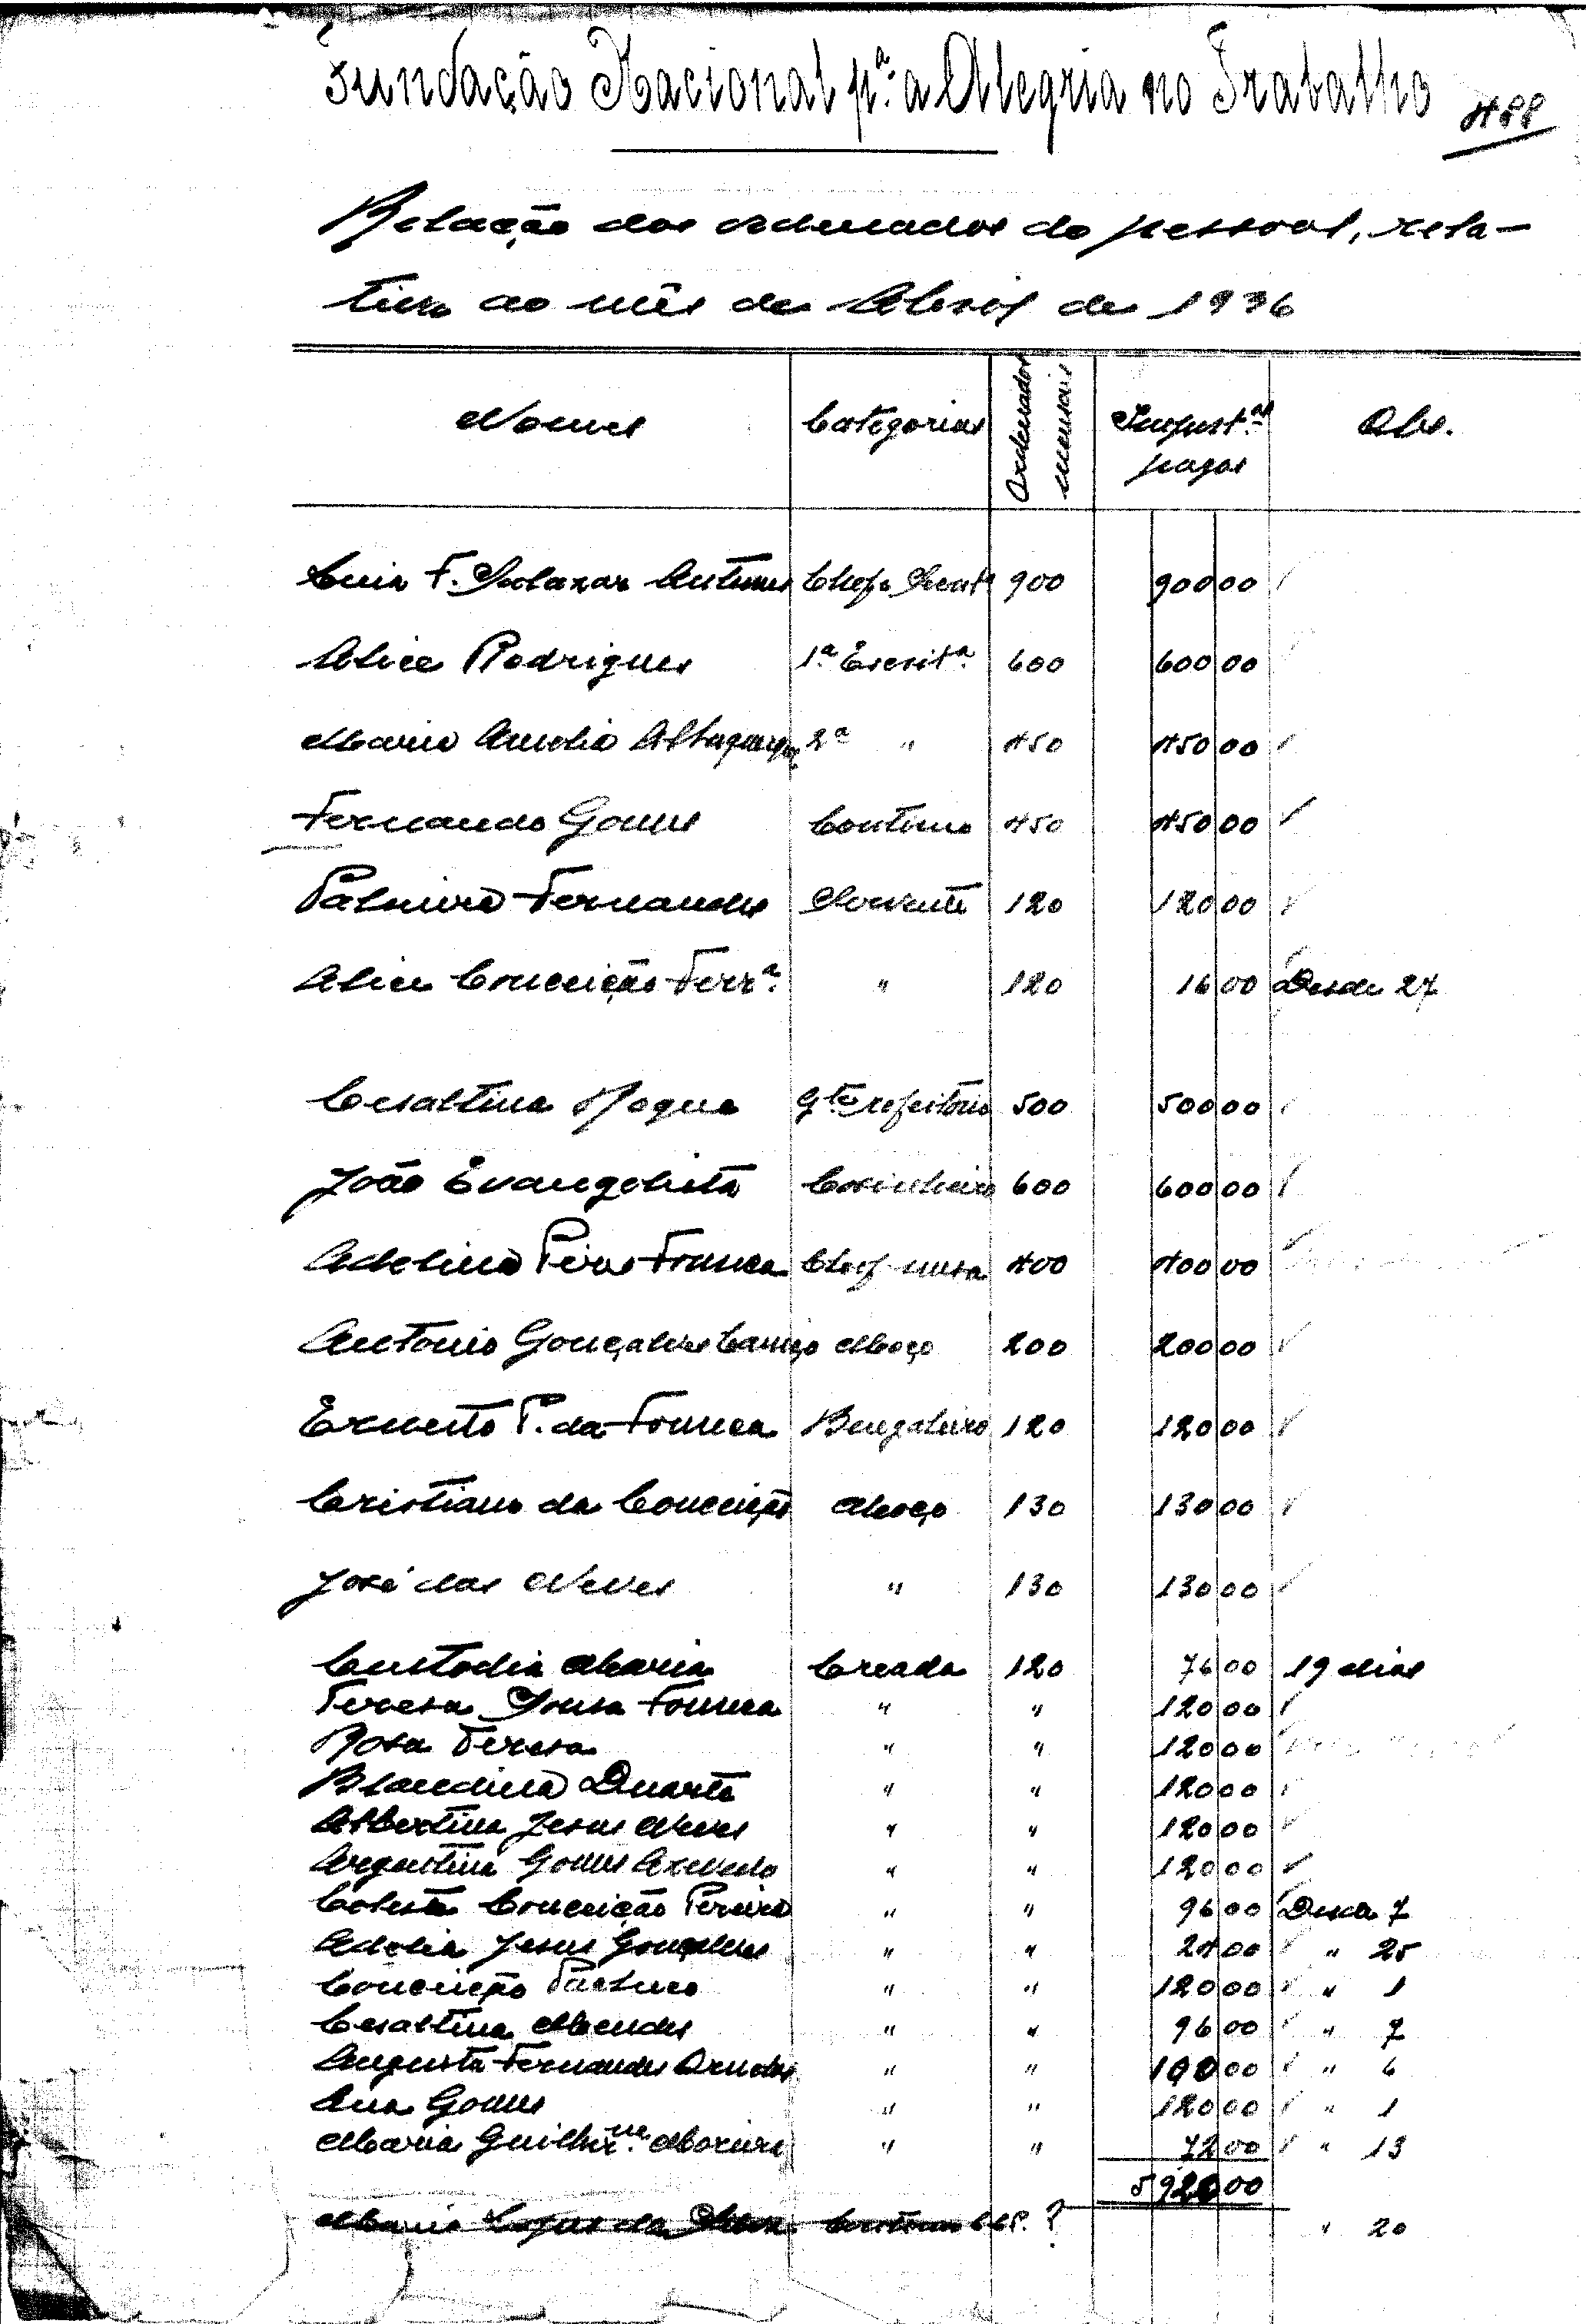 Fundação Nacional pª. a Alegria no Trabalho 488
Relação dos ordenados do pessoal, rela-
tiva ao mês de Abril de 1936
Nomes Categorias Ordenados mensais Import.as pagas Obs.
Luis F. Salazar Antunes Chefe Secret.ª 900 900 00
Alice Rodrigues 1ª Escritª. 600 600 00
Maria Amelia 2ª " 450 450 00
Fernando Gomes Contínuo 450 450 00
Palmira Fernandes Servente 120 120 00
Alice Conceição Ferrª. " 120 16 00 Desde 27
Cesaltina Roque Gte refeitório 500 500 00
João Evangelista Cosinheiro 600 600 00
Adelina Pires Fonseca Chefe mesa 400 400 00
António Gonçalves Moço 200 200 00
Ernesto P. da Fonseca Bengaleiro 120 120 00
Cristiano da Conceição Moço 130 130 00
José das Neves " 130 130 00
Custodia Maria Creada 120 76 00 19 dias
Teresa Sousa Fonseca " " 120 00
Rosa Teresa " " 120 00
Blandina Duarte " " 120 00
Albertina Jesus Neves " " 120 00
Argentina Gomes Azevedo " " 120 00
Celeste Conceição Pereira " " 96 00 Desde 7
Adelia Jesus Gonçalves " " 24 00 " 25
Conceição Pacheco " " 120 00 " 1
Cesaltina Mendes " " 96 00 " 7
Augusta Fernandes " " 100 00 " 6
Ana Gomes " " 120 00 " 1
Maria Guilher.me Moreira " " 72 00 " 13
5 920 00
Maria da Silva ? " 20